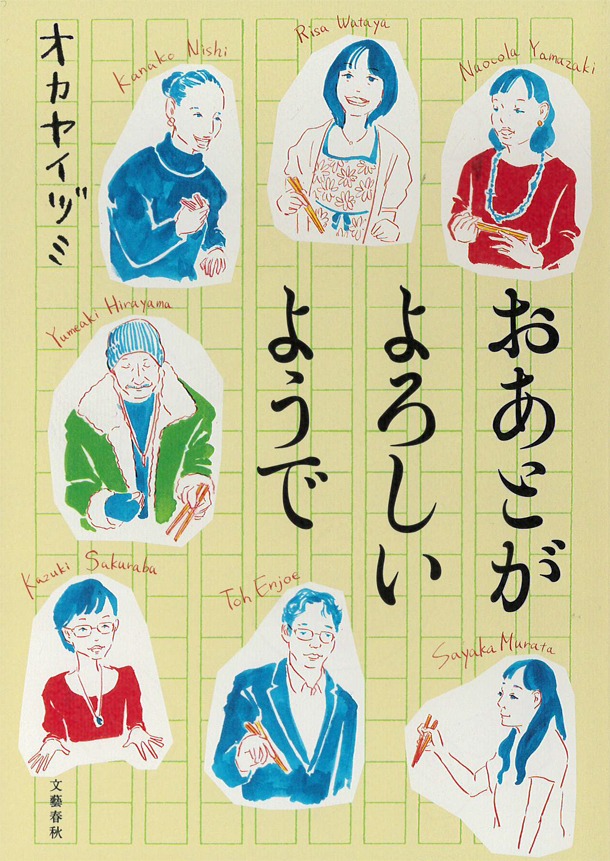 おあとが
よろしい
ようで
オカヤイヅミ
Kanako Nishi
Risa Wataya
Naocola Yamazaki
Yumeaki Hirayama
Kazuki Sakuraba
Toh Enjoe
Sayaka Murata
文藝春秋